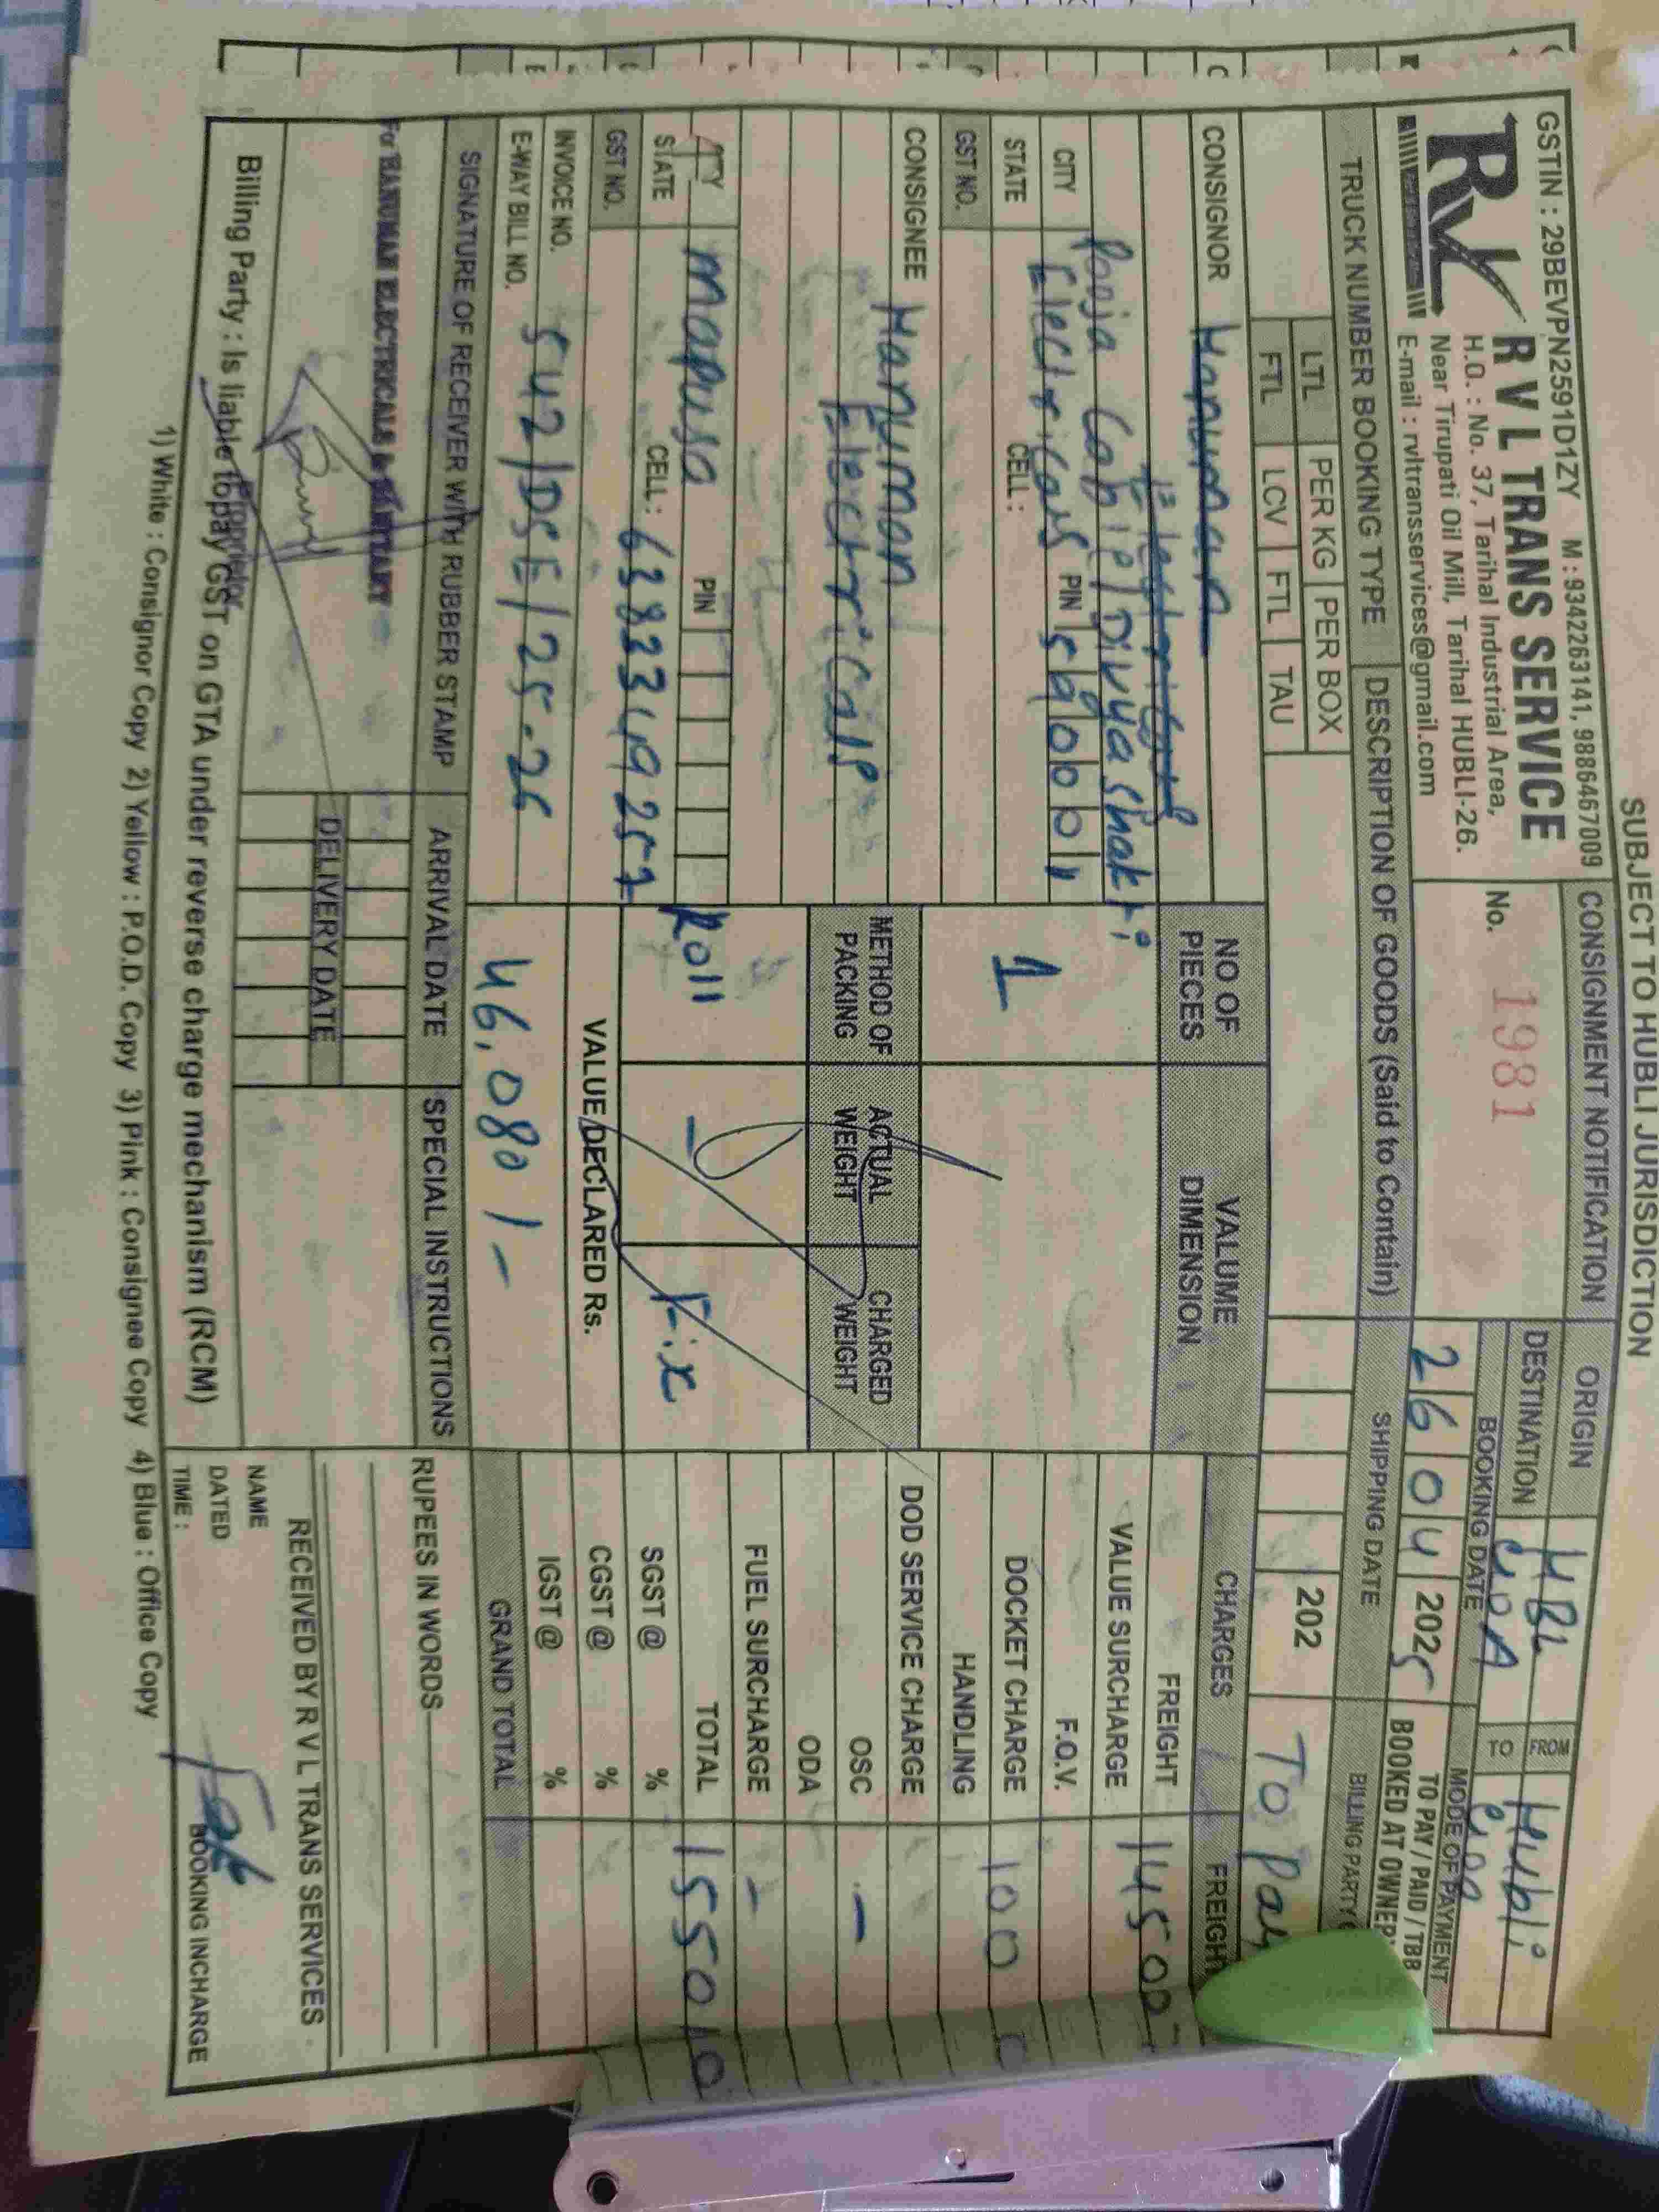 SUBJECT TO HUBLI JURISDICTION
GSTIN : 29BEVPN2591D1ZY M : 9342263141, 9886467009
R V L TRANS SERVICE
H.O. : No. 37, Tarihal Industrial Area,
Near Tirupati Oil Mill, Tarihal HUBLI-26.
E-mail : rvltransservices@gmail.com
CONSIGNMENT NOTIFICATION
No. 1981
ORIGIN HBL FROM Hubli
DESTINATION GOA TO Goa
BOOKING DATE MODE OF PAYMENT
26 04 2025 TO PAY / PAID / TBB
BOOKED AT OWNER
TRUCK NUMBER BOOKING TYPE DESCRIPTION OF GOODS (Said to Contain) SHIPPING DATE BILLING PARTY
LTL PER KG PER BOX
FTL LCV FTL TAU
202 To Pay
CONSIGNOR Hanuman
Electricals
Pooja Cable / Divya Shakti
CITY Electricals PIN 590001
STATE CELL :
GST NO.
CONSIGNEE Hanuman
Electricals
CITY Mapusa PIN
STATE CELL : 6383349257
GST NO.
INVOICE NO. 542/DSE/25-26
E-WAY BILL NO.
NO OF PIECES VALUME DIMENSION
1
METHOD OF PACKING ACTUAL WEIGHT CHARGED WEIGHT
Roll - Fix
VALUE DECLARED Rs.
46,080/-
CHARGES FREIGHT
FREIGHT 1450
VALUE SURCHARGE
F.O.V.
DOCKET CHARGE 100
HANDLING
DOD SERVICE CHARGE
OSC -
ODA
FUEL SURCHARGE -
TOTAL 1550
SGST @ %
CGST @ %
IGST @ %
GRAND TOTAL
SIGNATURE OF RECEIVER WITH RUBBER STAMP ARRIVAL DATE SPECIAL INSTRUCTIONS
For HANUMAN ELECTRICALS & SANITARY
Proprietor
DELIVERY DATE
RUPEES IN WORDS
RECEIVED BY R V L TRANS SERVICES
NAME
DATED
TIME : BOOKING INCHARGE
Billing Party : Is liable to pay GST on GTA under reverse charge mechanism (RCM)
1) White : Consignor Copy 2) Yellow : P.O.D. Copy 3) Pink : Consignee Copy 4) Blue : Office Copy